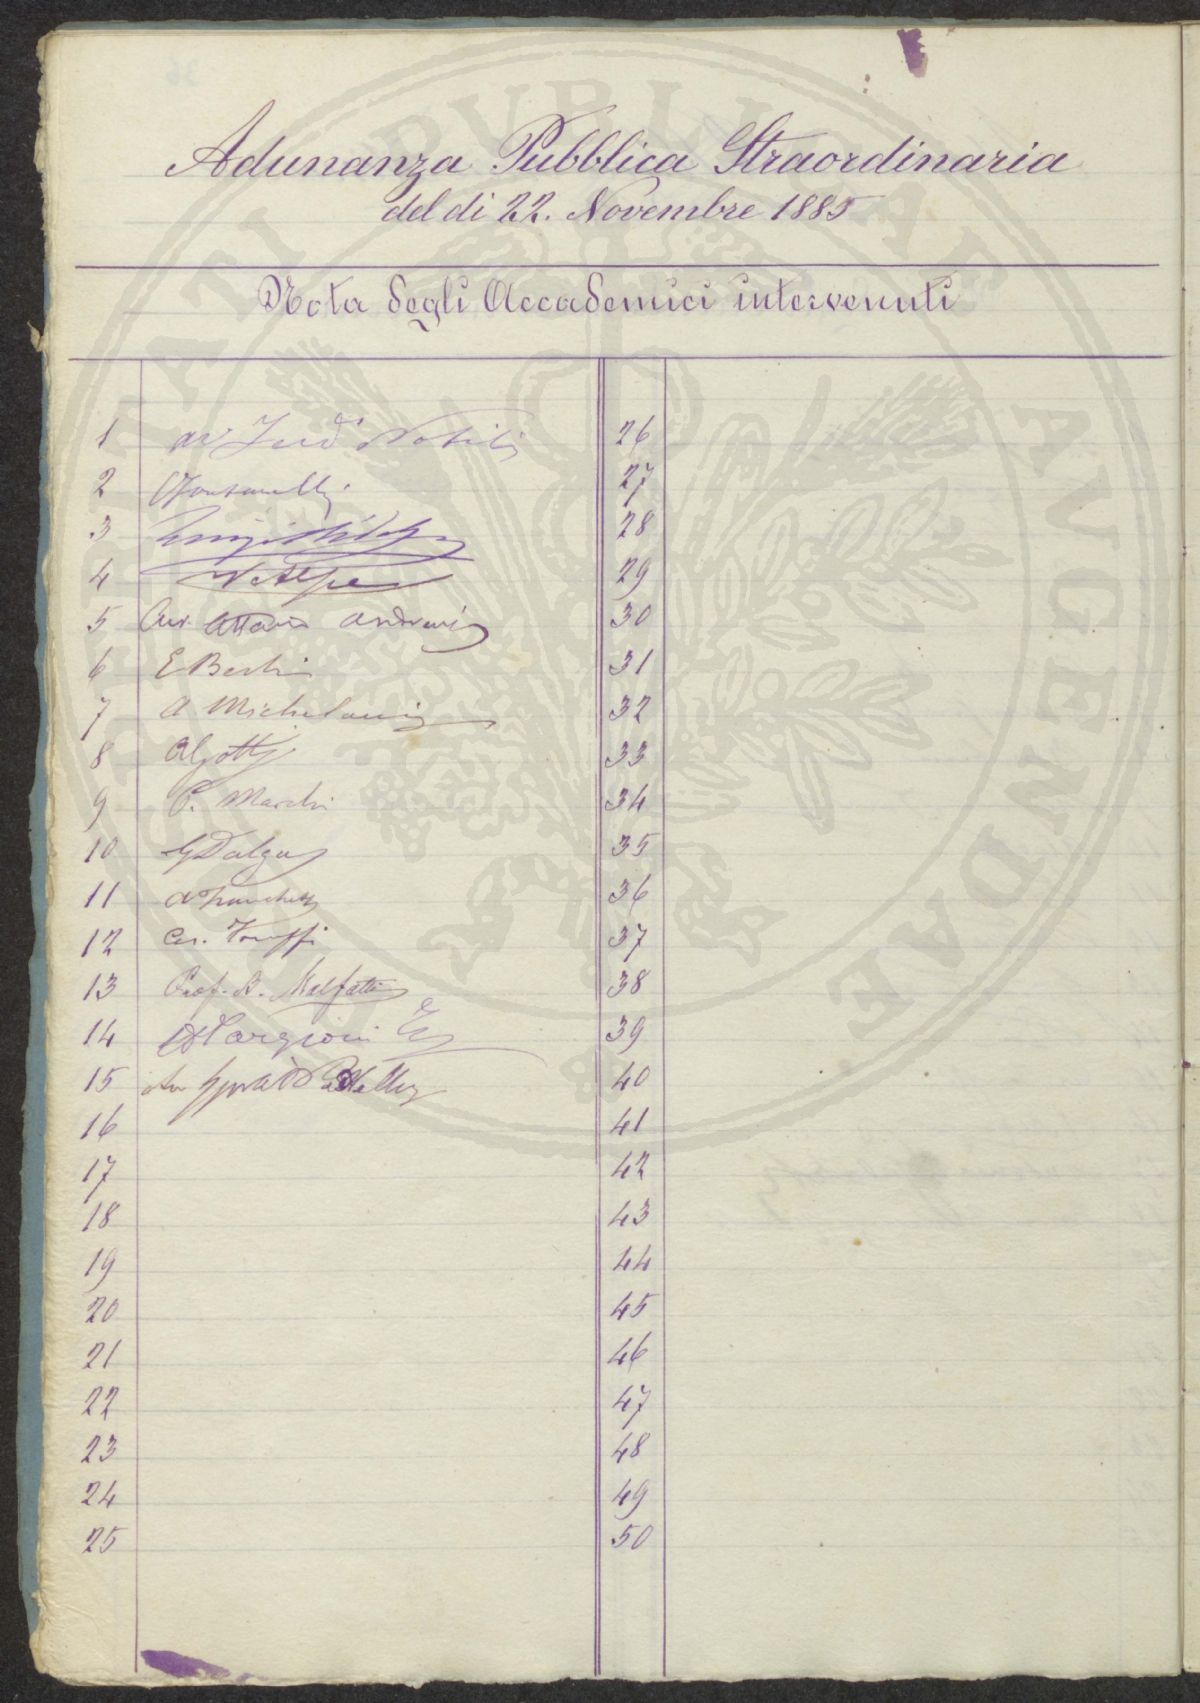 Adunanza Pubblica Straordinaria
del di 22. Novembre 1885
Nota degli Accademici intervenuti
1 Nobili
2
3 Luigi
4 N. Alpe
5 Avv. Attavio Andreucci
6 E Bechi
7 A Michelacci
8
9 P. Marchi
10 G Dalgas
11 A Franchetti
12 Ces.
13 Prof. B. Malfatti
14 Targioni
15
16
17
18
19
20
21
22
23
24
25
26
27
28
29
30
31
32
33
34
35
36
37
38
39
40
41
42
43
44
45
46
47
48
49
50
PUBLICAE AUGENDAE